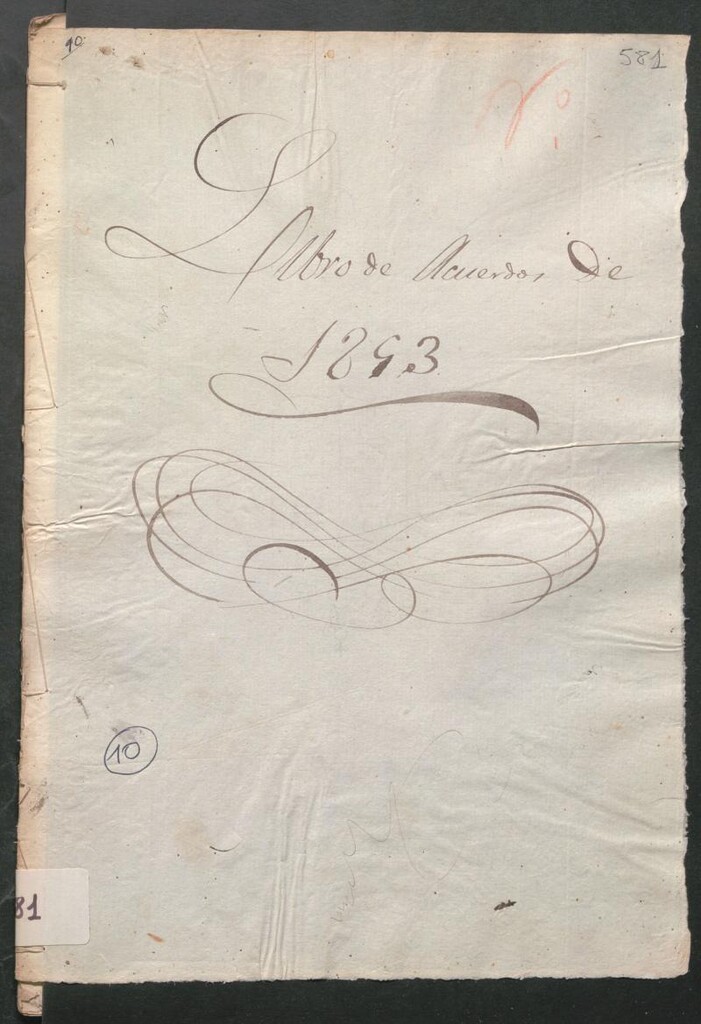 10
581
Nº
Libro de Acuerdos de
1853
10
81